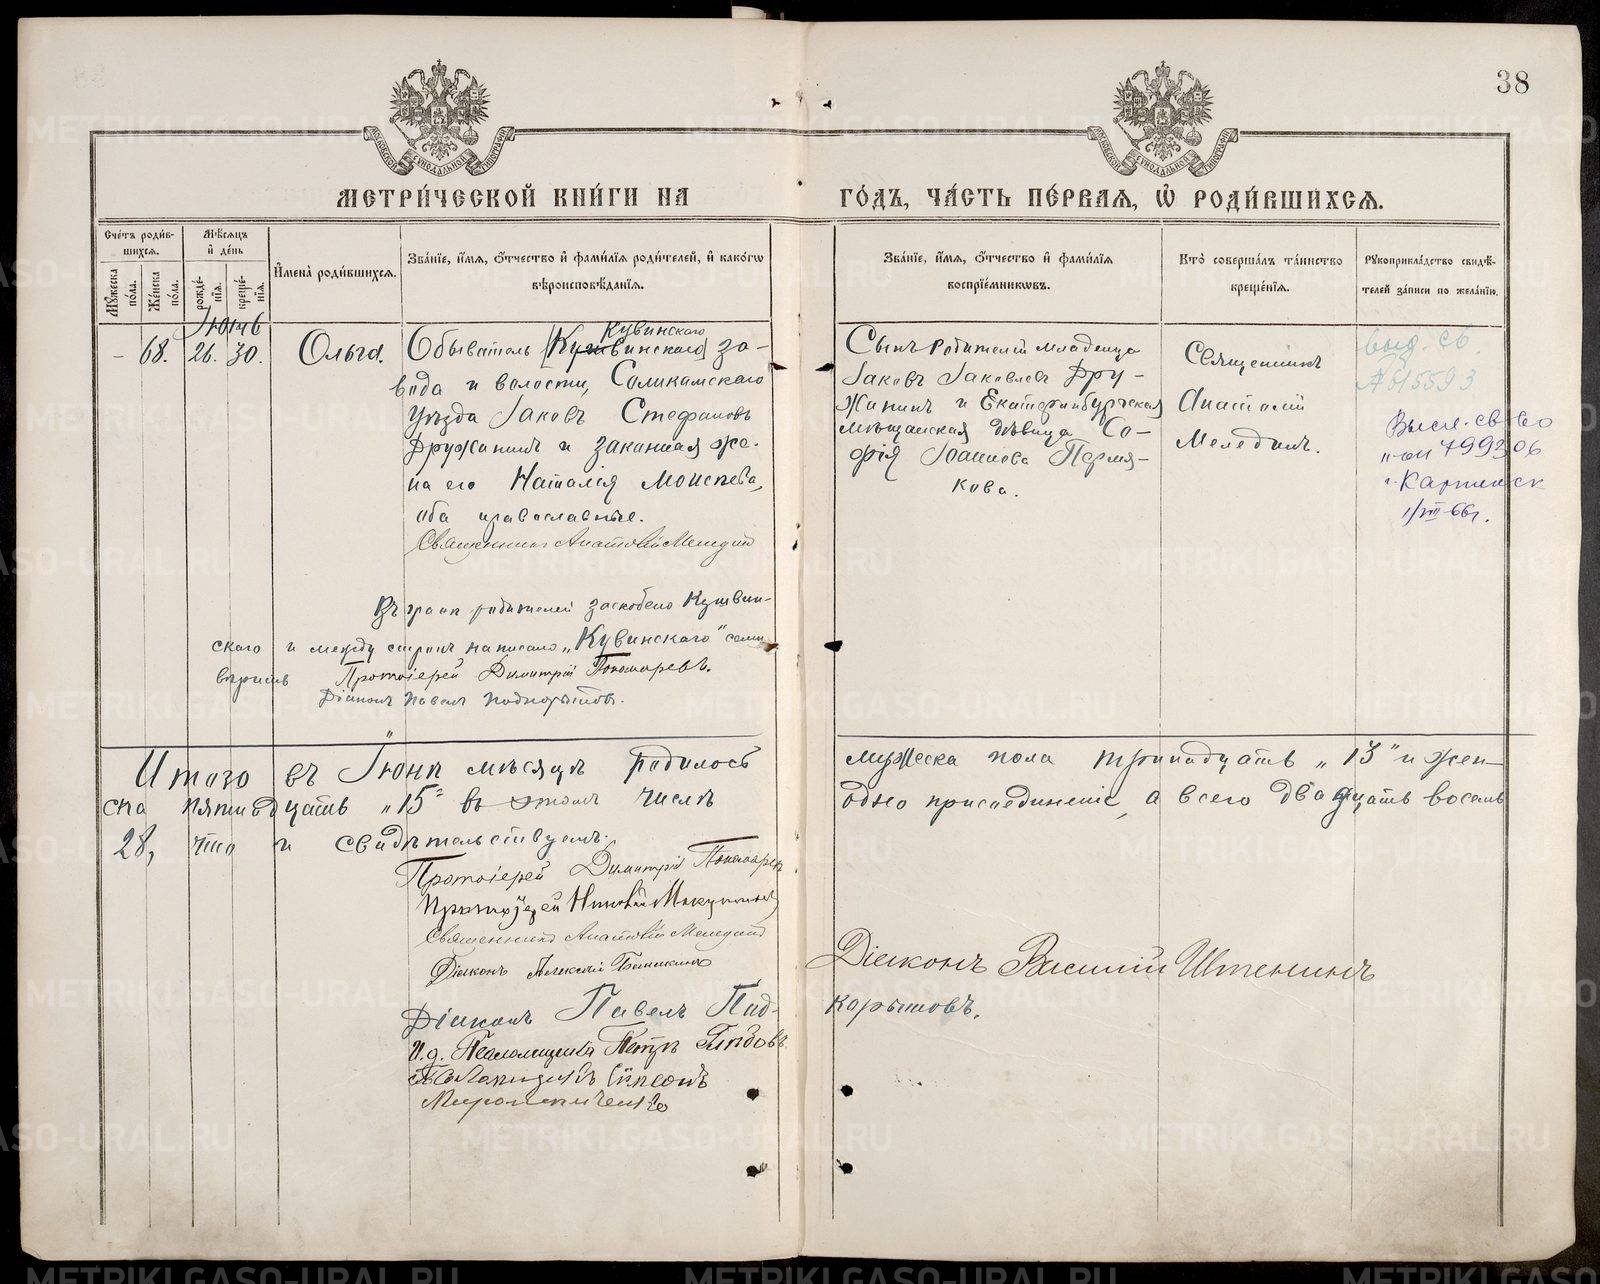 38
МОСКОВСКОЙ СѴНОДАЛЬНОЙ ТИПОГРАФІИ
МОСКОВСКОЙ СѴНОДАЛЬНОЙ ТИПОГРАФІИ
МЕТРИ́ЧЕСКОЙ КНИ́ГИ НА
ГО́ДЪ, ЧА́СТЬ ПЕ́РВАѦ, Ѡ҆ РОДИ́ВШИХСѦ.
Сче́тъ роди́в-
шихсѧ.
Мꙋ́жеска
по́ла.
Же́нска
по́ла.
Мѣ́сѧцъ
и҆ де́нь
рожде́-
нїѧ.
креще́-
нїѧ.
И҆мена̀ роди́вшихсѧ.
Зва́нїе, и҆́мѧ, ѻ҆́тчество и҆ фами́лїѧ роди́телей, и҆ како́гѡ
вѣроисповѣ́данїѧ.
Зва́нїе, и҆́мѧ, ѻ҆́тчество и҆ фами́лїѧ
воспрїе́мникѡвъ.
Кто̀ соверша́лъ та́инство
креще́нїѧ.
Рꙋкоприкла́дство свидѣ́-
телей за́писи по жела́нїю.
Іюнь
– 68. 26. 30. Ольга.
Кувинскаго
Обыватель [Кушвинскаго] за-
вода и волости, Соликамскаго
уѣзда Іаковъ Стефановъ
Дружининъ и законная же-
на его Наталія Моисеева,
оба православные.
Священникъ Анатолій Меледин
Сынъ родителей младенца
Іаковъ Іаковлевъ Дру-
жининъ и Екатеринбургская
мѣщанская дѣвица Со-
фія Іоаннова Пермя-
кова.
Священникъ
Анатолій
Мелединъ.
выд. св.
№ 615593
Высл. св-во
799306
г. Карпинск
1/VIII-66г.
Въ граф родителей заскоблено Кушвин-
скаго и между строк написано „Кувинскаго" сему
вѣрить Протоіерей Димитрій Пономаревъ.
Діаконъ Павелъ Подкорытовъ.
Итого въ Іюнѣ мѣсяцѣ родилось
мужеска пола тринадцать „13" и жен-
ска пятнадцать „15" въ этомъ числѣ
одно присоединеніе, а всего двадцать восемь
28, что и свидѣтельствуемъ.
Протоіерей Димитрій Пономарев
Протоіерей
Священникъ Анатолій Меледин
Діаконъ Алексій
Діаконъ Василій Штенинъ
Діаконъ Павелъ Под-
корытовъ.
И.д. Псаломщика Петръ
Псаломщикъ Симеонъ